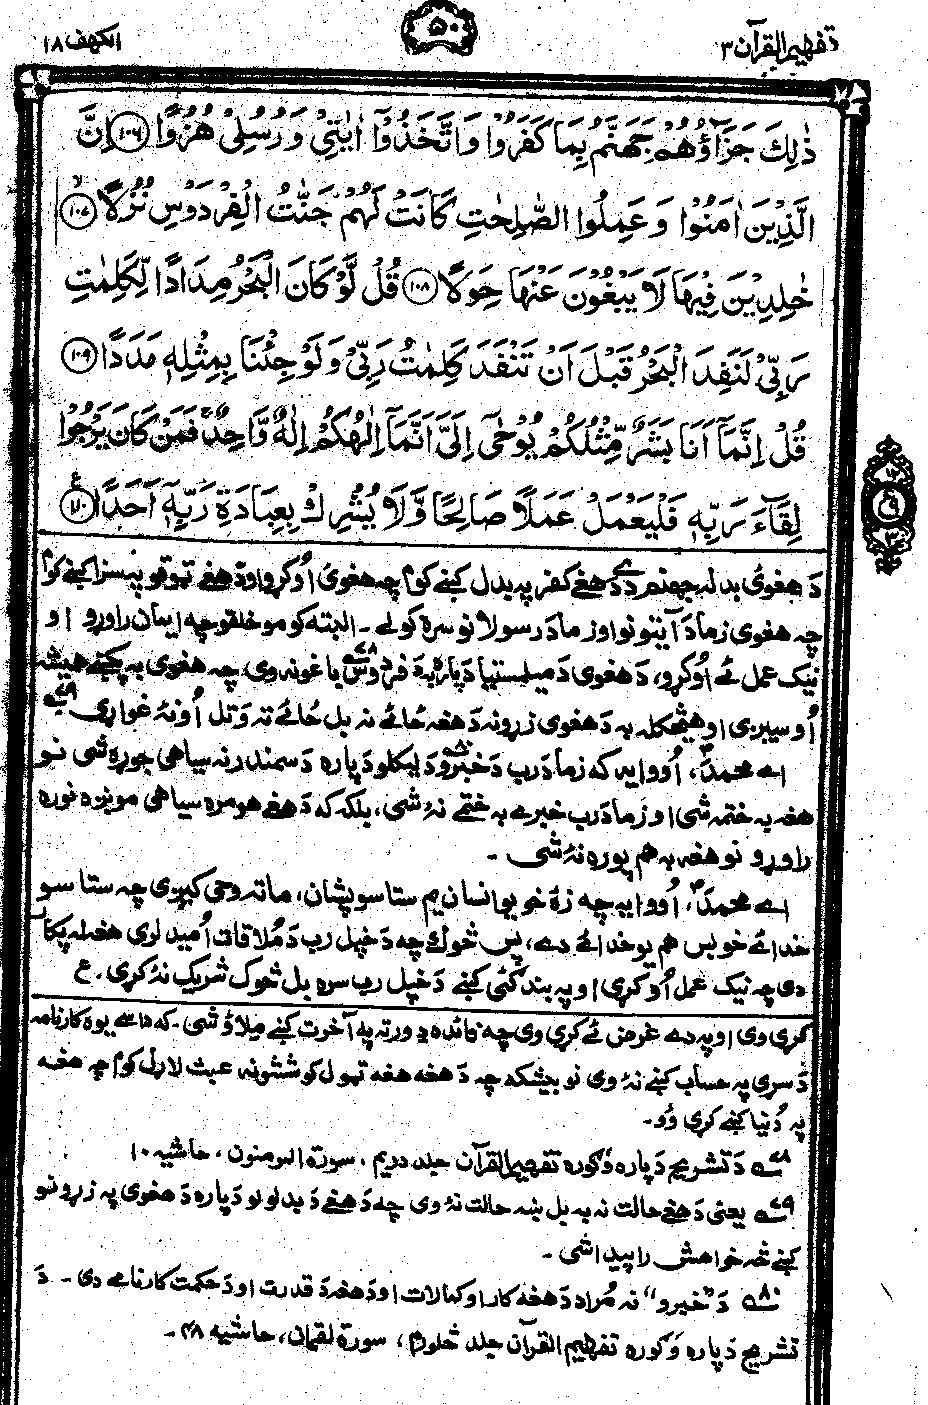 تفهیم القرآن ۳
۵۰
الکهف ۱۸
ذٰلِكَ جَزَآؤُهُمْ جَهَنَّمُ بِمَا كَفَرُوْا وَاتَّخَذُوْٓا اٰيٰتِيْ وَرُسُلِيْ هُزُوًا ۝۱۰۶ اِنَّ
الَّذِيْنَ اٰمَنُوْا وَعَمِلُوا الصّٰلِحٰتِ كَانَتْ لَهُمْ جَنّٰتُ الْفِرْدَوْسِ نُزُلًا ۝۱۰۷
خٰلِدِيْنَ فِيْهَا لَا يَبْغُوْنَ عَنْهَا حِوَلًا ۝۱۰۸ قُلْ لَّوْ كَانَ الْبَحْرُ مِدَادًا لِّكَلِمٰتِ
رَبِّيْ لَنَفِدَ الْبَحْرُ قَبْلَ اَنْ تَنْفَدَ كَلِمٰتُ رَبِّيْ وَلَوْ جِئْنَا بِمِثْلِهٖ مَدَدًا ۝۱۰۹
قُلْ اِنَّمَآ اَنَا بَشَرٌ مِّثْلُكُمْ يُوْحٰٓى اِلَيَّ اَنَّمَآ اِلٰهُكُمْ اِلٰهٌ وَّاحِدٌ ۚ فَمَنْ كَانَ يَرْجُوْا
لِقَآءَ رَبِّهٖ فَلْيَعْمَلْ عَمَلًا صَالِحًا وَّلَا يُشْرِكْ بِعِبَادَةِ رَبِّهٖٓ اَحَدًا ۝۱۱۰
دَ هغوئ بدله جهنم دے دَ هغے کفر په بدل کښے کوم چه هغوئ اُوکړو او دَ هغے ټوقو په سزا کښے کوم
چه هغوی زما دَ آیتونو او زما دَ رسولانو سره کولے ـ البته کومو خلقو چه ایمان راوړو او
نیک عمل ئے اُوکړو، دَ هغوی دَ میلمستیا دَپاره به دَ فردوس۷۸ باغونه وی، چه هغوی به پکښے همیشه
اُوسیږی او هیڅکله به دَ هغوی زړونه دَ هغه ځائے نه بل ځائے ته وَتل اُونۀ غواړی ۷۹ـ
اے محمدؐ، اُووایه که زما دَ رب دَ خبرو۸۰ دَ لیکلو دَپاره دَ سمندر نه سیاهی جوړه شی نو
هغه به ختمه شی او زما دَ رب خبرے به ختمے نۀ شی، بلکه که دَ هغے هومره سیاهی مونږه نوره
راوړو نو هغه به هم پوره نۀ شی ـ
اے محمدؐ، اُووایه چه زۀ خو یو انسان یم ستاسو پشان، ما ته وحی کیږی چه ستاسو
خدائے خو بس هم یو خدائے دے، پس څوک چه دَ خپل رب دَ مُلاقات اُمید لری هغه له پکار
دی چه نیک عمل اُوکړی او په بندګئ کښے دَ خپل رب سره بل څوک شریک نۀ کړی ـ ع
کړی وی او په دے غرض ئے کړی وی چه فائده ورته په آخرت کښے میلاؤ شی ـ که داسے یوه کارنامه
دَ سړی په حساب کښے نۀ وی نو بیشکه چه دَ هغه هغه ټول کوششونه عبث لاړل کوم چه هغه
په دُنیا کښے کړی وُو ـ
۷۸ دَ تشریح دَپاره وګوره تفهیم القرآن جلد دریم، سورة المومنون، حاشیه ۱۰
۷۹ یعنی دَ هغے حالت نه به بل ښه حالت نۀ وی چه دَ هغے دَ بدلولو دَپاره دَ هغوی په زړونو
کښے څه خواهش راپیدا شی ـ
۸۰ دَ ”خبرو“ نه مُراد دَ هغه کار او کمالات او دَ هغه دَ قدرت او دَ حکمت کارنامے دی ـ دَ
تشریح دَپاره وګوره تفهیم القرآن جلد څلورم، سورة لقمان، حاشیه ۴۸ ـ